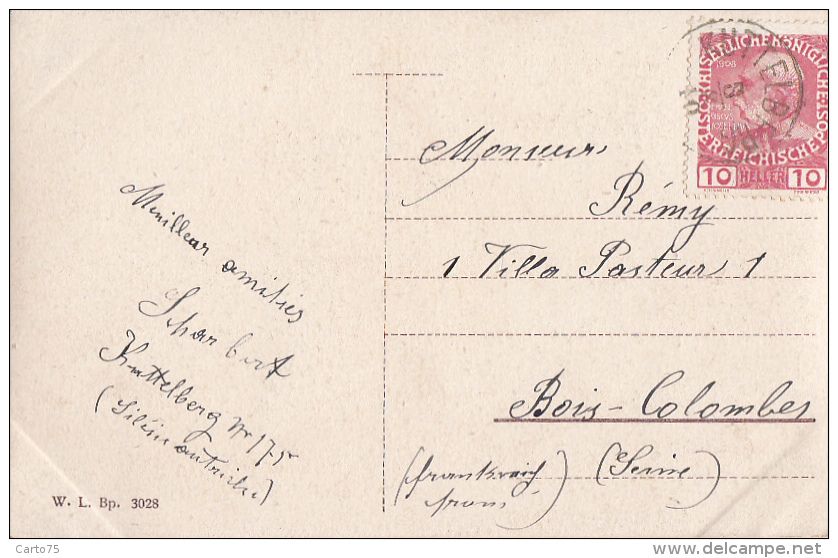 Meilleur amitiés
Scharbert
Kuttelberg Nr 175
(Silésie autriche)
W. L. Bp. 3028
Monsieur
Rémy
1 Villa Pasteur 1
Bois-Colombes
(Frankreich) (Seine)
KAISERLICHE KÖNIGLICHE
ÖSTERREICHISCHE POST
1908
10 HELLER 10
KUTTELBERG
10
Carto75
delcampe.net